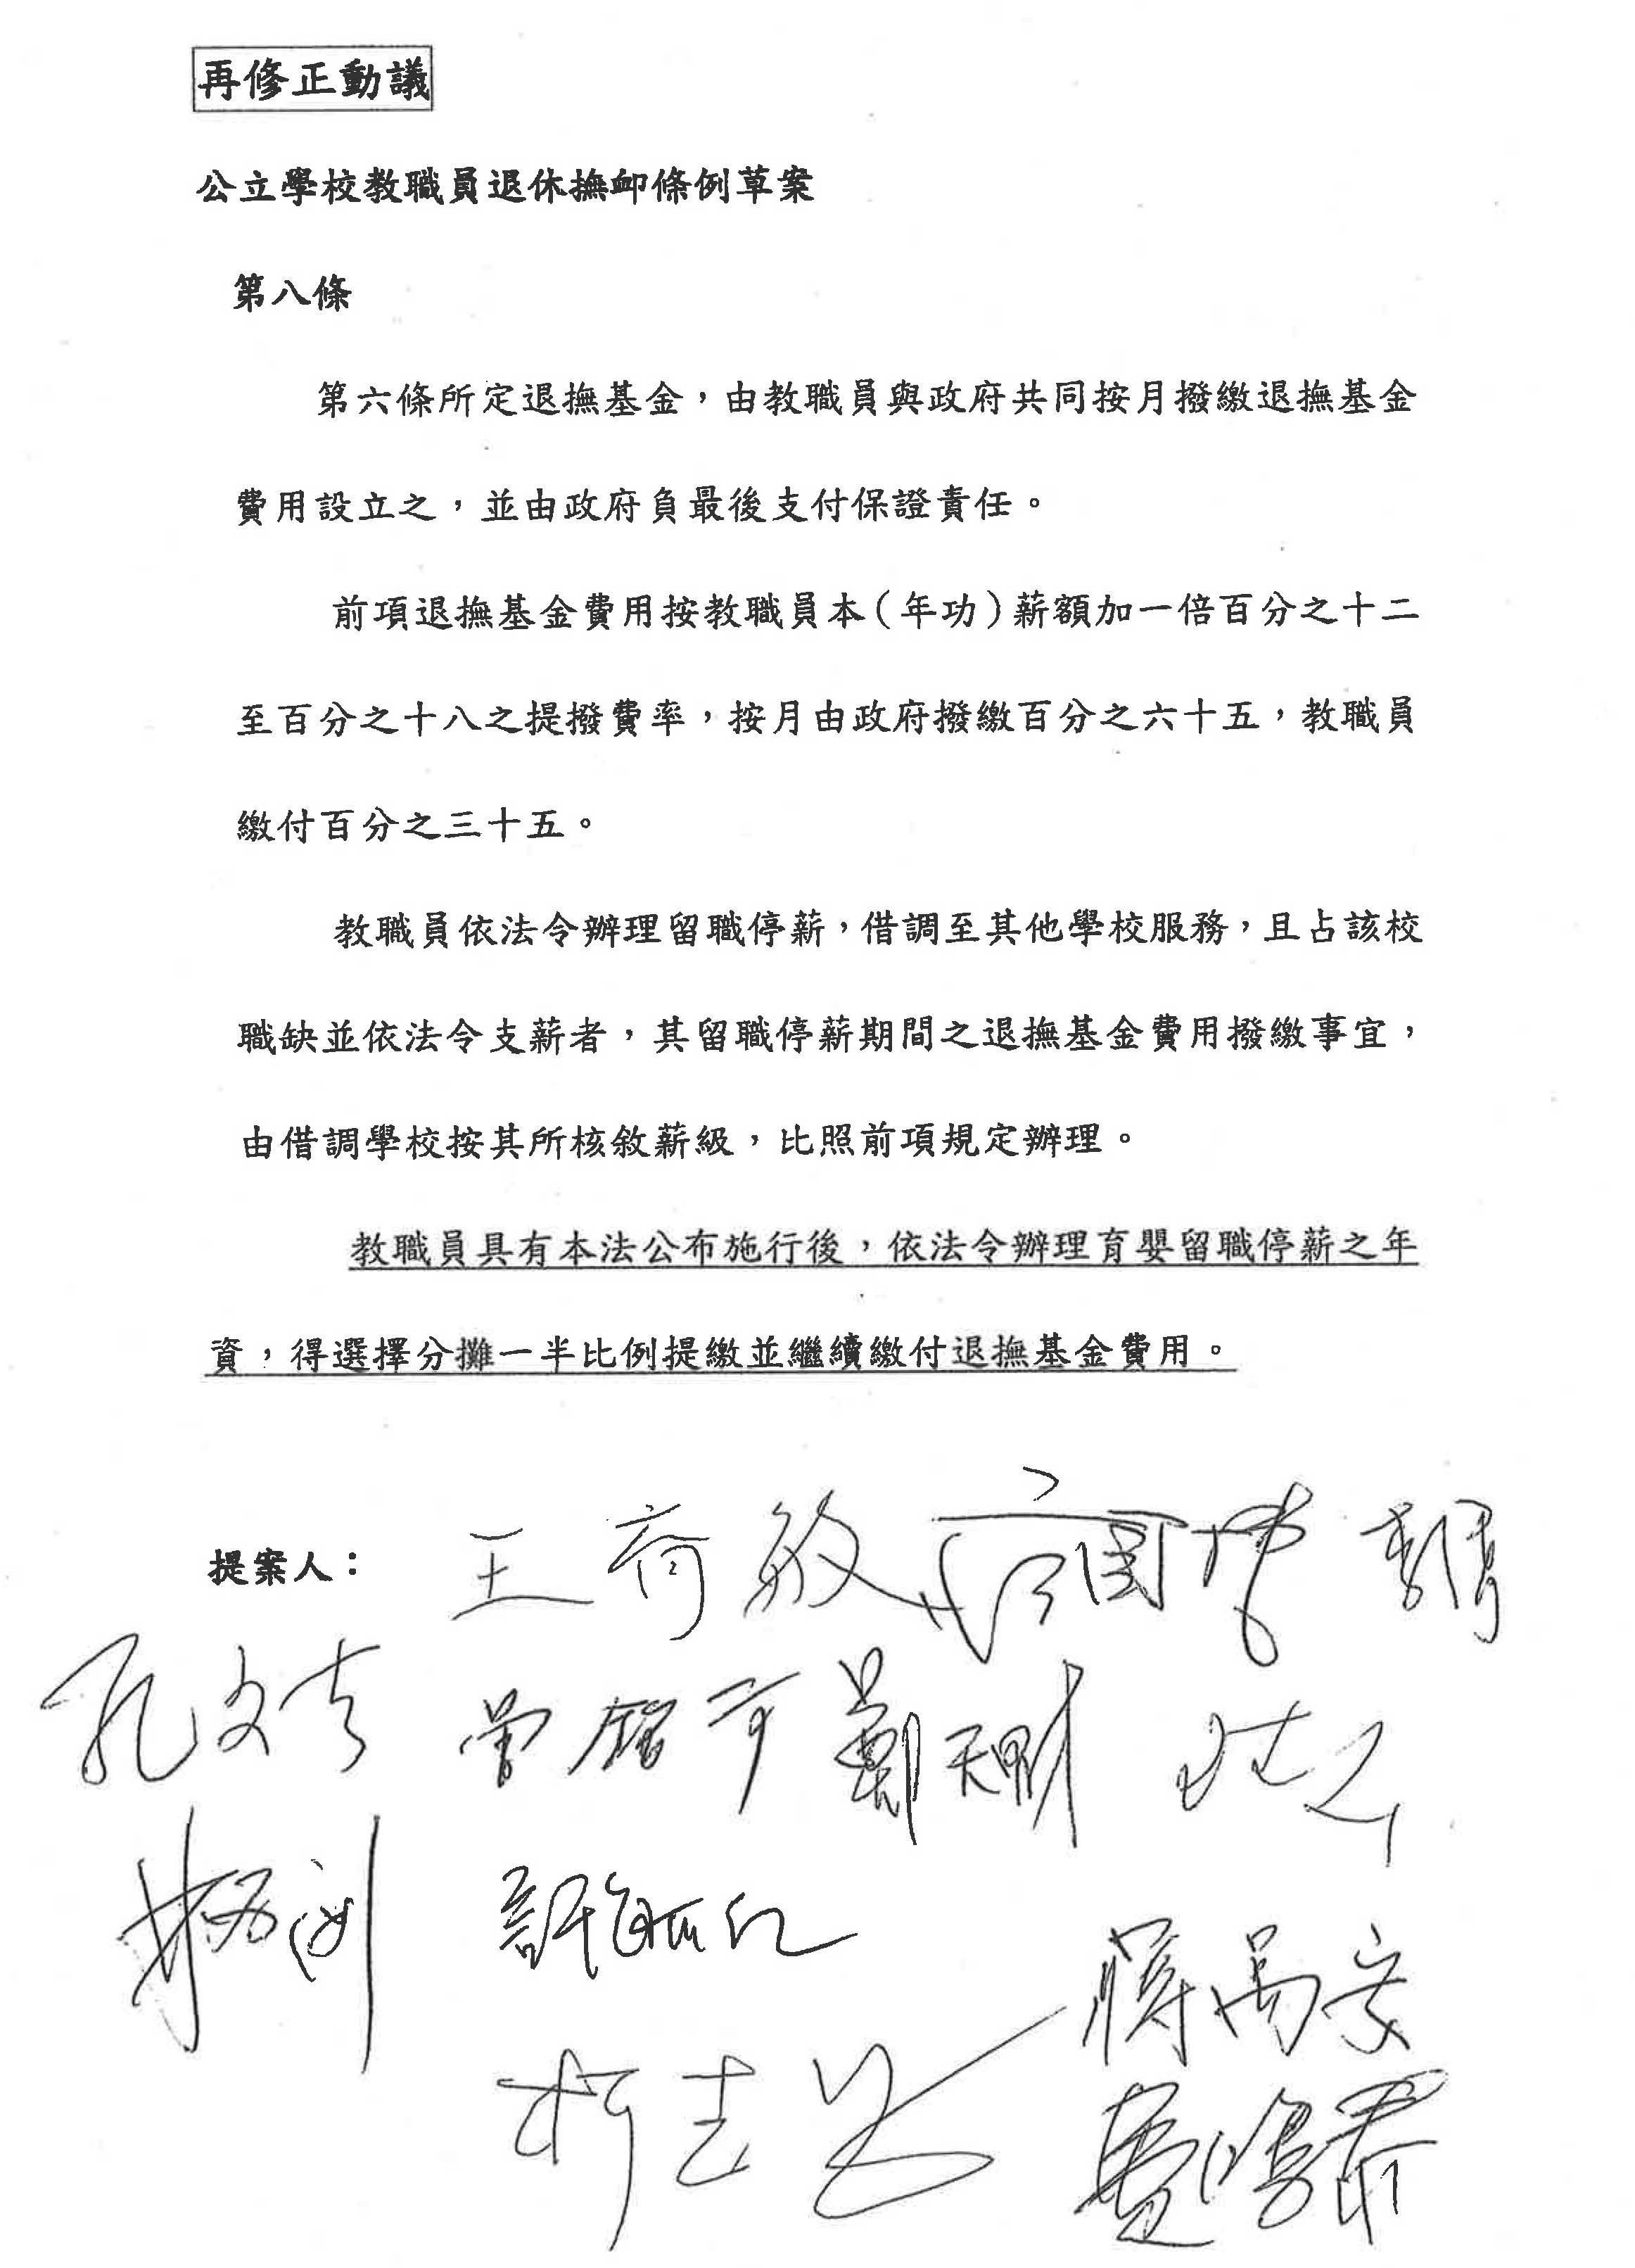 再修正動議
公立學校教職員退休撫卹條例草案
第八條
第六條所定退撫基金，由教職員與政府共同按月撥繳退撫基金
費用設立之，並由政府負最後支付保證責任。
前項退撫基金費用按教職員本（年功）薪額加一倍百分之十二
至百分之十八之提撥費率，按月由政府撥繳百分之六十五，教職員
繳付百分之三十五。
教職員依法令辦理留職停薪，借調至其他學校服務，且占該校
職缺並依法令支薪者，其留職停薪期間之退撫基金費用撥繳事宜，
由借調學校按其所核敘薪級，比照前項規定辦理。
教職員具有本法公布施行後，依法令辦理育嬰留職停薪之年
資，得選擇分攤一半比例提繳並繼續繳付退撫基金費用。
提案人：
王育敏
孔文吉 曾銘宗 鄭天財
許毓仁
蔣萬安
柯志恩